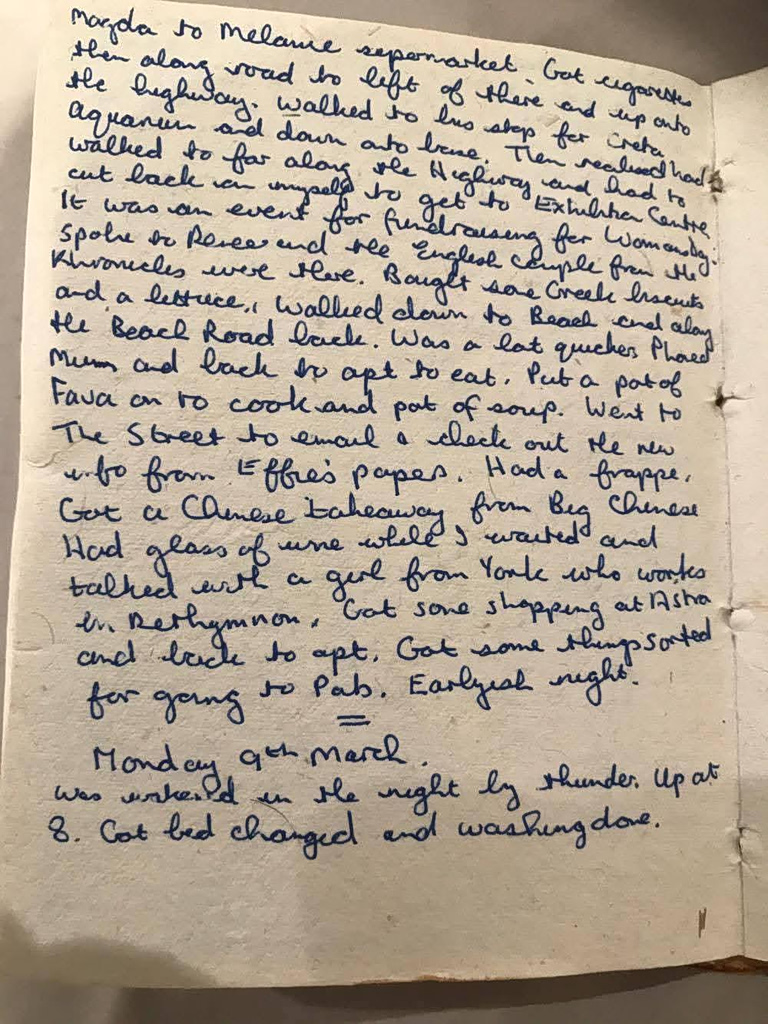 Magda to Melanie supermarket. Got cigarettes
then along road to left of there and up onto
the highway. Walked to bus stop for Creta
Aquarium and down onto base. Then realised had
walked to far along the Highway and had to
cut back on myself to get to Exhibition Centre
It was an event for fundraising for Womansday.
Spoke to Renee and the English couple from the
Khronicles were there. Bought some Greek biscuits
and a lettuce. Walled down to Beach and along
the Beach Road back. Was a lot quicker Phoned
Mum and back to apt to eat. Put a pot of
Fava on to cook and pot of soup. Went to
The Street to email & check out the new
info from Effie's papers. Had a frappe.
Got a Chinese takeaway from Big Chinese
Had glass of wine while I waited and
talked with a girl from York who works
in Rethymnon. Got some shopping at Astra
and back to apt. Got some things sorted
for going to Pab. Earlyish night.
=
Monday 9th March.
Was wakened in the night by thunder. Up at
8. Got bed changed and washing done.